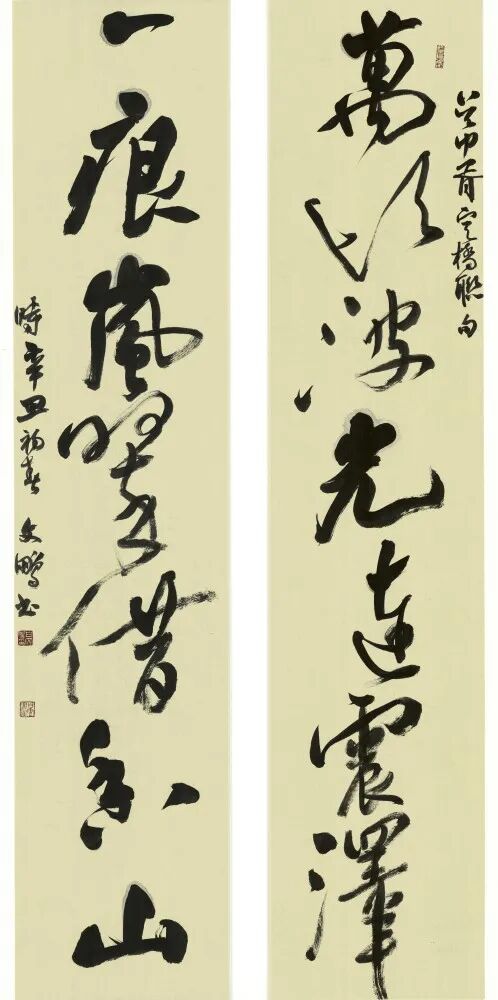 吳中胥定橋聯句
萬頃波光連震澤
一痕嵐翠借香山
時辛丑初春 文鵬書